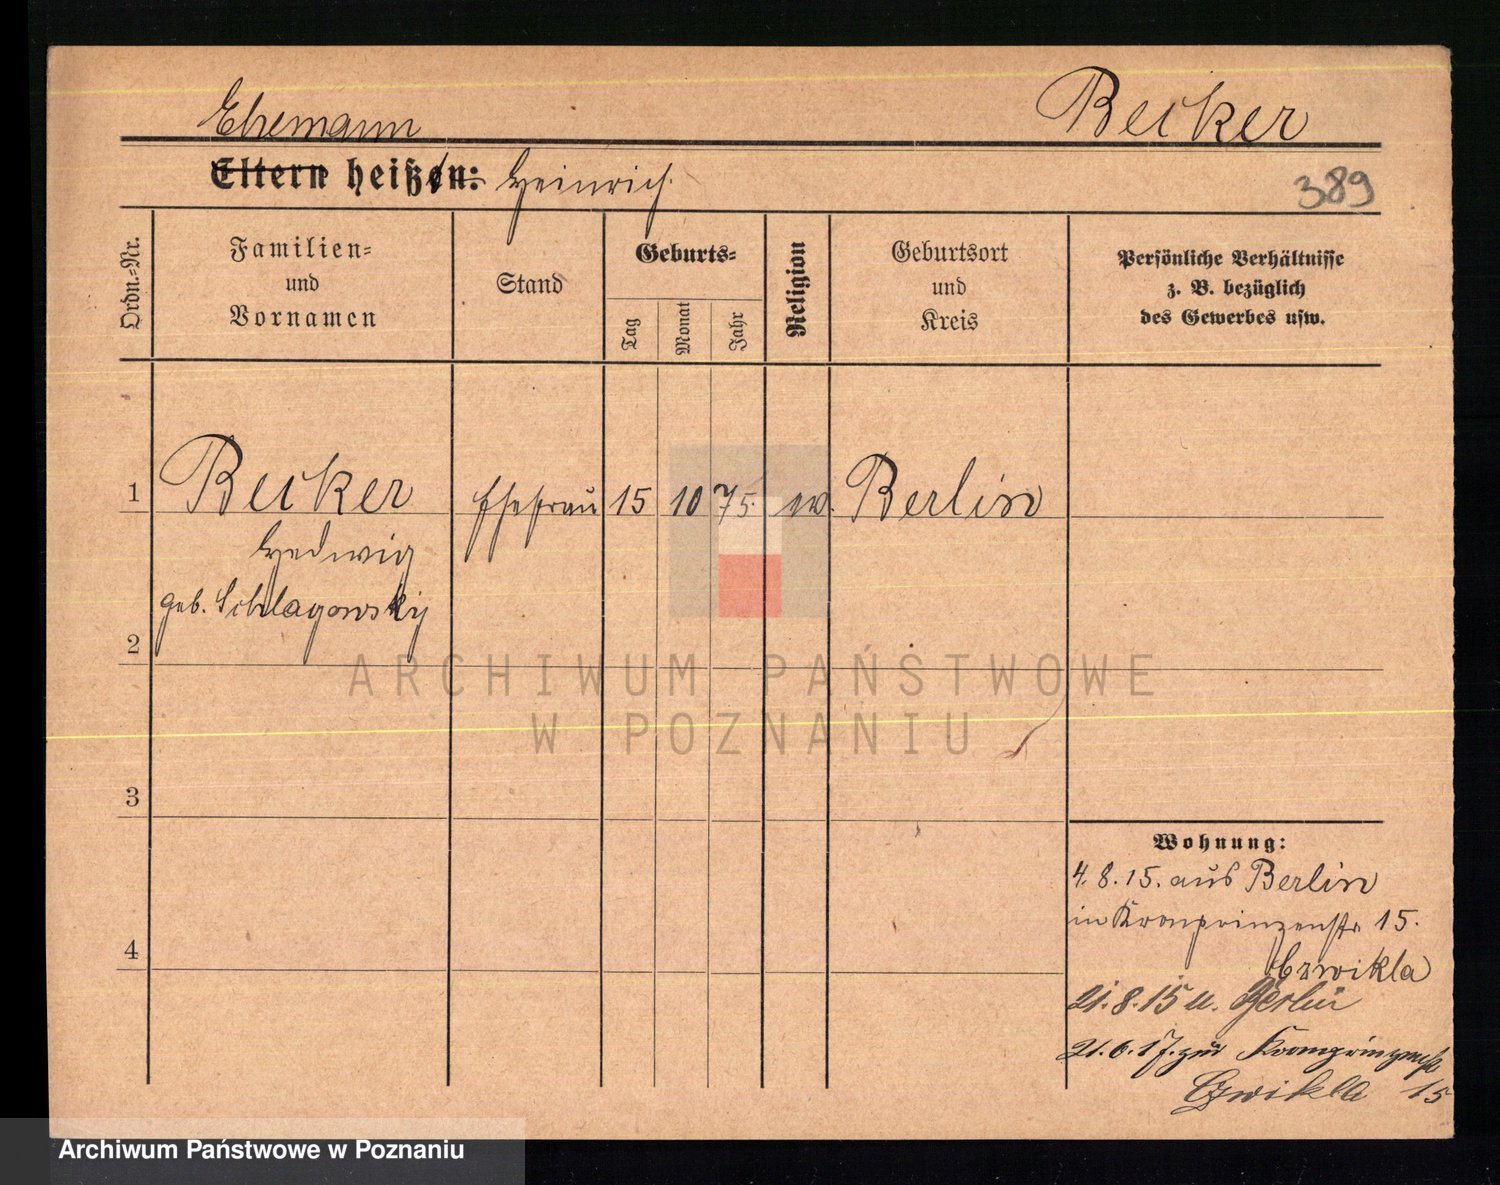 Ehemann
Becker
Eltern heißen: Heinrich.
389
Ordn.=Nr.
Familien=
und
Vornamen
Stand
Geburts=
Tag
Monat
Jahr
Religion
Geburtsort
und
Kreis
Persönliche Verhältnisse
z. B. bezüglich
des Gewerbes usw.
1 Becker Ehefrau 15 10 75. ev. Berlin
Hedwig
geb. Schlagowsky
2
ARCHIWUM PAŃSTWOWE
W POZNANIU
3
Wohnung:
4. 8. 15. aus Berlin
in Kronprinzenstr 15.
4
Czwikla
21. 8. 15 n. Berlin
21. 6. 17. zur Kronprinzenstr
Czwikla 15
Archiwum Państwowe w Poznaniu